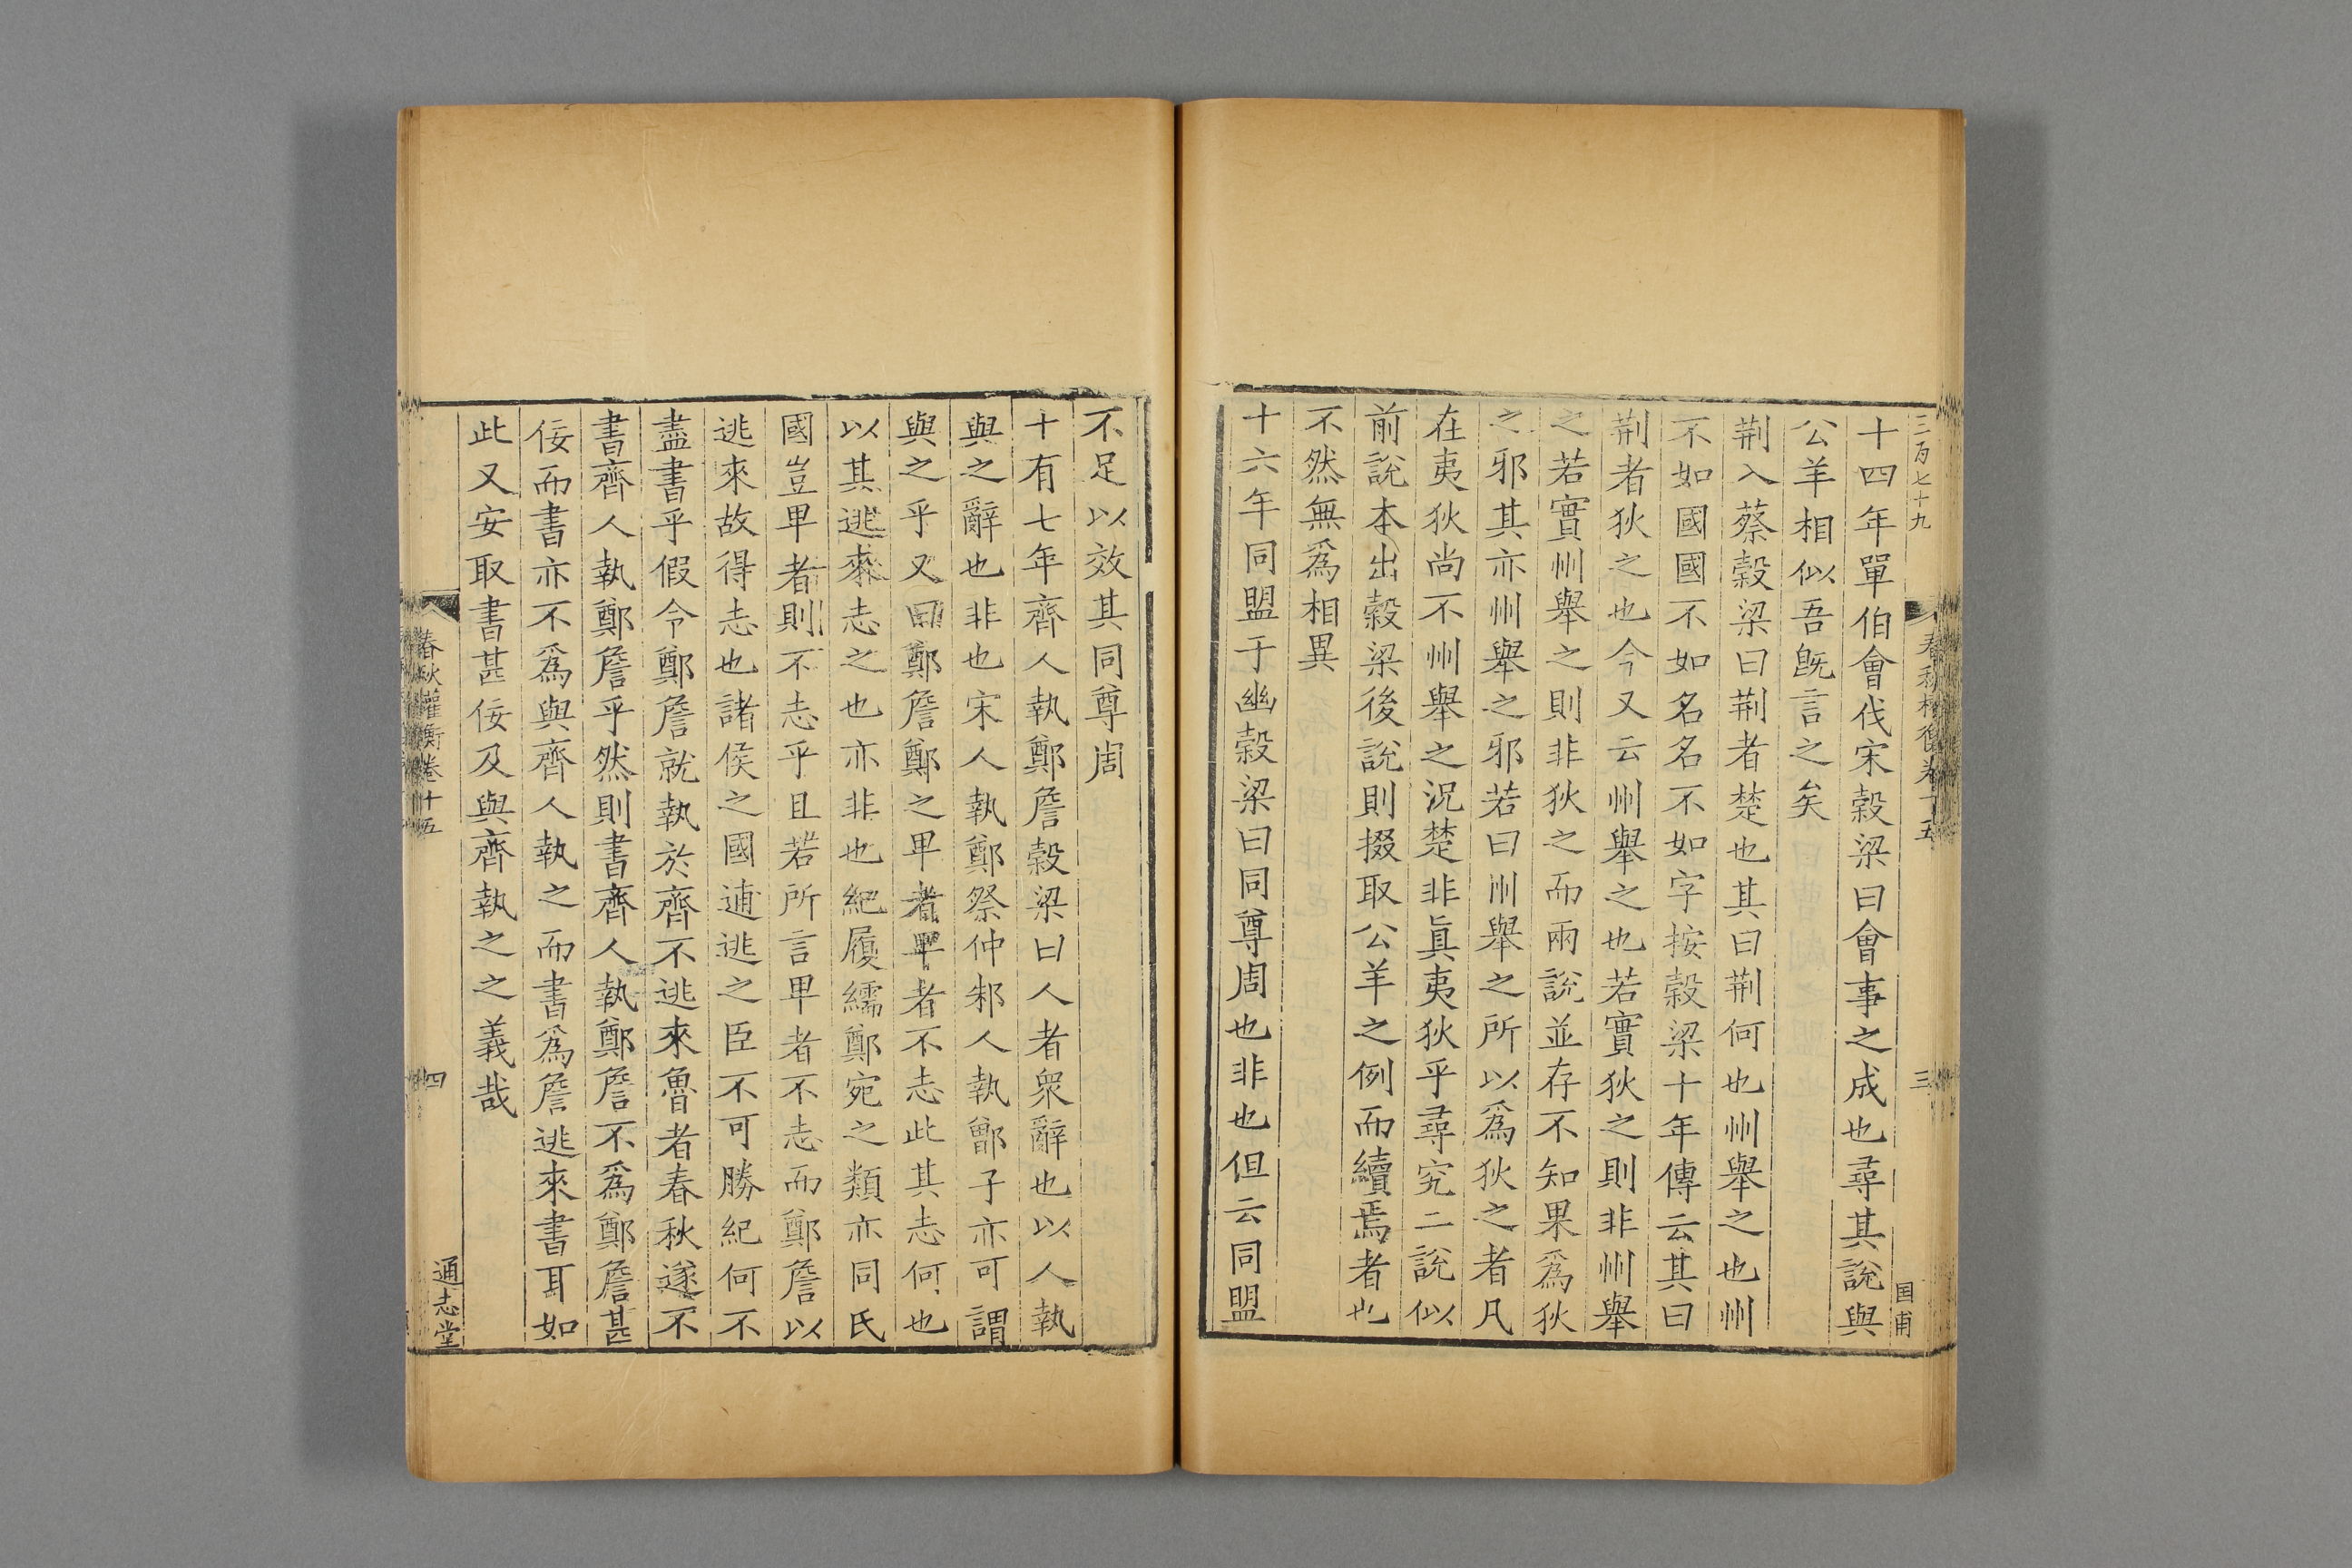 三百七十九
春秋權衡卷十五
三
国甫
十四年單伯會伐宋穀梁曰會事之成也尋其說與
公羊相似吾旣言之矣
荆入蔡穀梁曰荆者楚也其曰荆何也州舉之也州
不如國國不如名名不如字按穀梁十年傳云其曰
荆者狄之也今又云州舉之也若實狄之則非州舉
之若實州舉之則非狄之而兩說並存不知果爲狄
之邪其亦州舉之邪若曰州舉之所以爲狄之者凡
在夷狄尚不州舉之況楚非眞夷狄乎尋究二說似
前說本出穀梁後說則掇取公羊之例而續焉者也
不然無爲相異
十六年同盟于幽穀梁曰同尊周也非也但云同盟
不足以效其同尊周
十有七年齊人執鄭詹穀梁曰人者衆辭也以人執
與之辭也非也宋人執鄭祭仲邾人執鄫子亦可謂
與之乎又曰鄭詹鄭之卑者卑者不志此其志何也
以其逃來志之也亦非也紀履繻鄭宛之類亦同氏
國豈卑者則不志乎且若所言卑者不志而鄭詹以
逃來故得志也諸侯之國逋逃之臣不可勝紀何不
盡書乎假令鄭詹就執於齊不逃來魯者春秋遂不
書齊人執鄭詹乎然則書齊人執鄭詹不爲鄭詹甚
佞而書亦不爲與齊人執之而書爲詹逃來書耳如
此又安取書甚佞及與齊執之之義哉
春秋權衡卷十五
四
通志堂